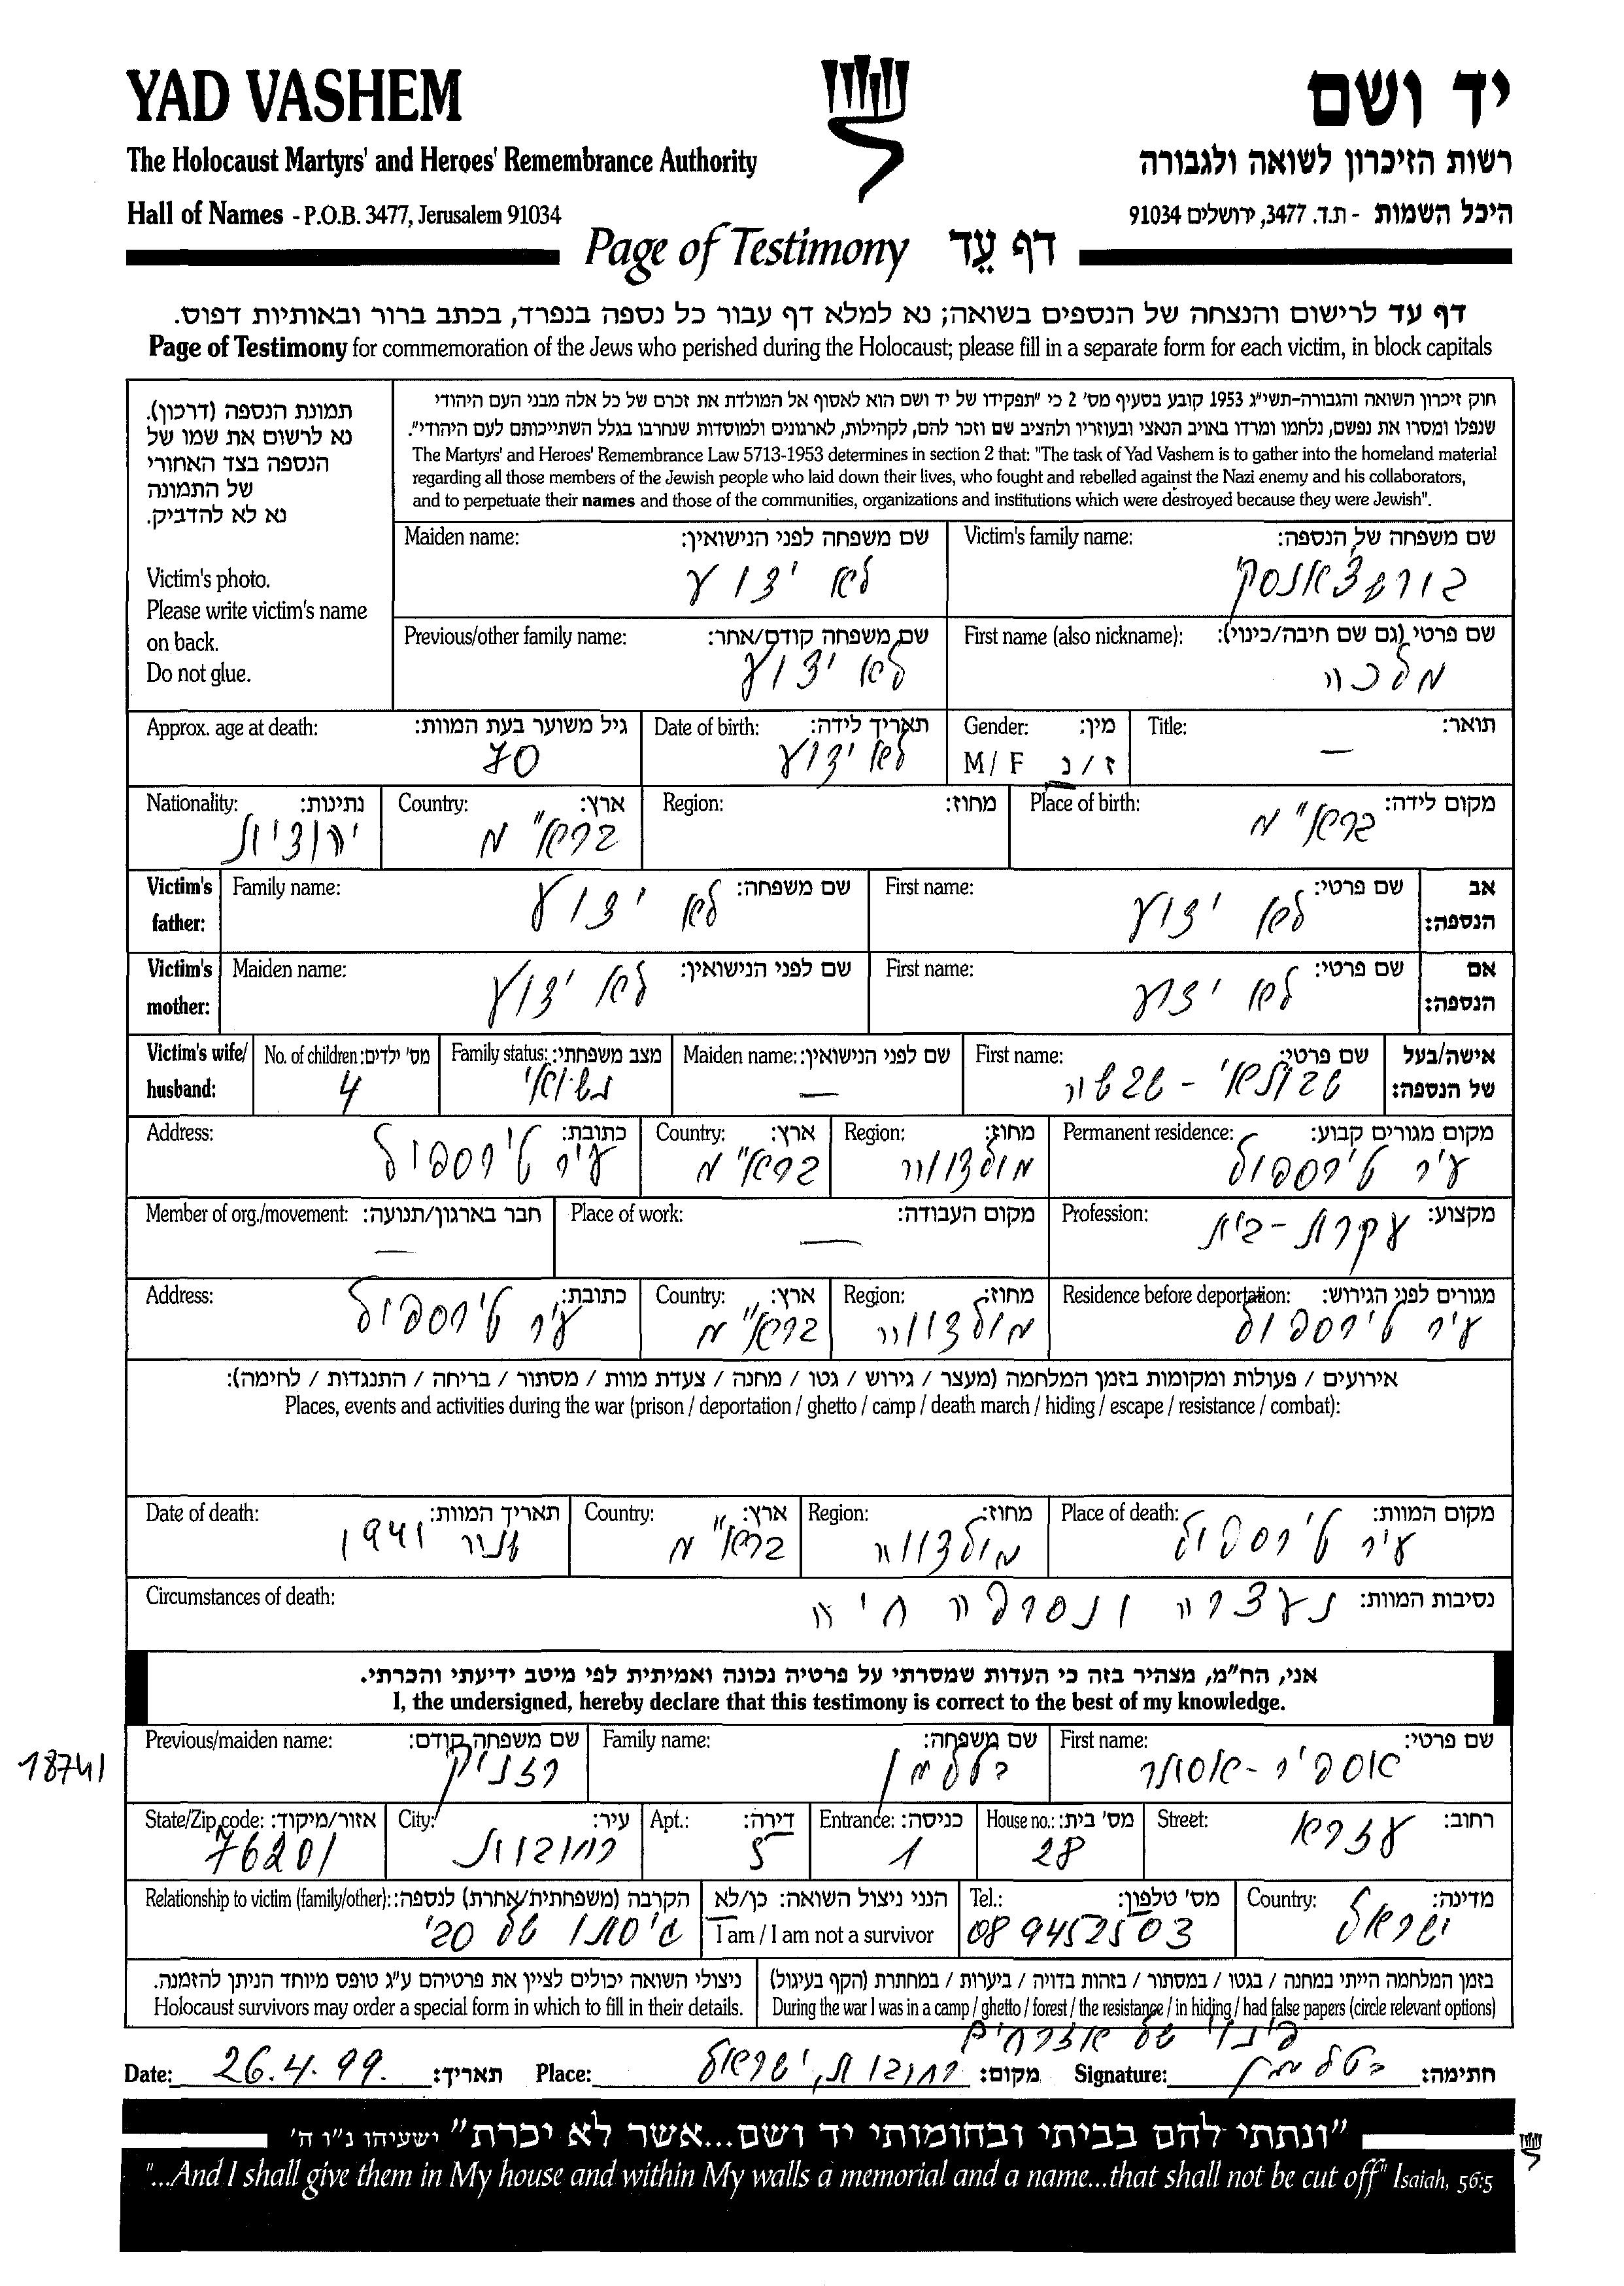 YAD VASHEM
יד ושם
The Holocaust Martyrs' and Heroes' Remembrance Authority
רשות הזיכרון לשואה ולגבורה
Hall of Names - P.O.B. 3477, Jerusalem 91034
היכל השמות - ת.ד. 3477, ירושלים 91034
Page of Testimony דף עֵד
דף עד לרישום והנצחה של הנספים בשואה; נא למלא דף עבור כל נספה בנפרד, בכתב ברור ובאותיות דפוס.
Page of Testimony for commemoration of the Jews who perished during the Holocaust; please fill in a separate form for each victim, in block capitals
תמונת הנספה (דרכון).
נא לרשום את שמו של
הנספה בצד האחורי
של התמונה
נא לא להדביק.
Victim's photo.
Please write victim's name
on back.
Do not glue.
חוק זיכרון השואה והגבורה-תשי"ג 1953 קובע בסעיף מס' 2 כי "תפקידו של יד ושם הוא לאסוף אל המולדת את זכרם של כל אלה מבני העם היהודי
שנפלו ומסרו את נפשם, נלחמו ומרדו באויב הנאצי ובעוזריו ולהציב שם וזכר להם, לקהילות, לארגונים ולמוסדות שנחרבו בגלל השתייכותם לעם היהודי".
The Martyrs' and Heroes' Remembrance Law 5713-1953 determines in section 2 that: "The task of Yad Vashem is to gather into the homeland material
regarding all those members of the Jewish people who laid down their lives, who fought and rebelled against the Nazi enemy and his collaborators,
and to perpetuate their names and those of the communities, organizations and institutions which were destroyed because they were Jewish".
Victim's family name: שם משפחה של הנספה:
Maiden name: שם משפחה לפני הנישואין:
לא ידוע
First name (also nickname): שם פרטי (גם שם חיבה/כינוי):
מלכה
Previous/other family name: שם משפחה קודם/אחר:
לא ידוע
Title: תואר:
—
Gender: מין:
M / F ז / נ
Date of birth: תאריך לידה:
לא ידוע
Approx. age at death: גיל משוער בעת המוות:
70
Place of birth: מקום לידה:
ברה"מ
Region: מחוז:
Country: ארץ:
ברה"מ
Nationality: נתינות:
יהודית
Victim's father: אב הנספה:
First name: שם פרטי:
לא ידוע
Family name: שם משפחה:
לא ידוע
Victim's mother: אם הנספה:
First name: שם פרטי:
לא ידוע
Maiden name: שם לפני הנישואין:
לא ידוע
Victim's wife/husband: אישה/בעל של הנספה:
First name: שם פרטי:
Maiden name: שם לפני הנישואין:
—
Family status: מצב משפחתי:
נשואי
No. of children: מס' ילדים:
4
Permanent residence: מקום מגורים קבוע:
עיר טירספול
Region: מחוז:
מולדווה
Country: ארץ:
ברה"מ
Address: כתובת:
עיר טירספול
Profession: מקצוע:
עקרת-בית
Place of work: מקום העבודה:
—
Member of org./movement: חבר בארגון/תנועה:
—
Residence before deportation: מגורים לפני הגירוש:
עיר טירספול
Region: מחוז:
מולדווה
Country: ארץ:
ברה"מ
Address: כתובת:
עיר טירספול
אירועים / פעולות ומקומות בזמן המלחמה (מעצר / גירוש / גטו / מחנה / צעדת מוות / מסתור / בריחה / התנגדות / לחימה):
Places, events and activities during the war (prison / deportation / ghetto / camp / death march / hiding / escape / resistance / combat):
Place of death: מקום המוות:
עיר טירספול
Region: מחוז:
מולדווה
Country: ארץ:
ברה"מ
Date of death: תאריך המוות:
שנה 1941
Circumstances of death: נסיבות המוות:
נעצרה ונסרפה חיה
אני, הח"מ, מצהיר בזה כי העדות שמסרתי על פרטיה נכונה ואמיתית לפי מיטב ידיעתי והכרתי.
I, the undersigned, hereby declare that this testimony is correct to the best of my knowledge.
18741
First name: שם פרטי:
אספיר-אסתר
Family name: שם משפחה:
Previous/maiden name: שם משפחה קודם:
רזניק
Street: רחוב:
עזרא
House no.: מס' בית:
28
Entrance: כניסה:
1
Apt.: דירה:
5
City: עיר:
רחובות
State/Zip code: אזור/מיקוד:
76201
Country: מדינה:
ישראל
Tel.: מס' טלפון:
08 9452503
הנני ניצול השואה: כן/לא
I am / I am not a survivor
Relationship to victim (family/other): הקרבה (משפחתית/אחרת) לנספה:
גיסתו של סבי
בזמן המלחמה הייתי במחנה / בגטו / במסתור / בזהות בדויה / ביערות / במחתרת (הקף בעיגול)
During the war I was in a camp / ghetto / forest / the resistance / in hiding / had false papers (circle relevant options)
פינוי של אזרחים
ניצולי השואה יכולים לציין את פרטיהם ע"ג טופס מיוחד הניתן להזמנה.
Holocaust survivors may order a special form in which to fill in their details.
Date: 26.4.99. תאריך: Place: רחובות, ישראל מקום: Signature: חתימה:
"ונתתי להם בביתי ובחומותי יד ושם...אשר לא יכרת" ישעיהו נ"ו ה'
"...And I shall give them in My house and within My walls a memorial and a name...that shall not be cut off" Isaiah, 56:5